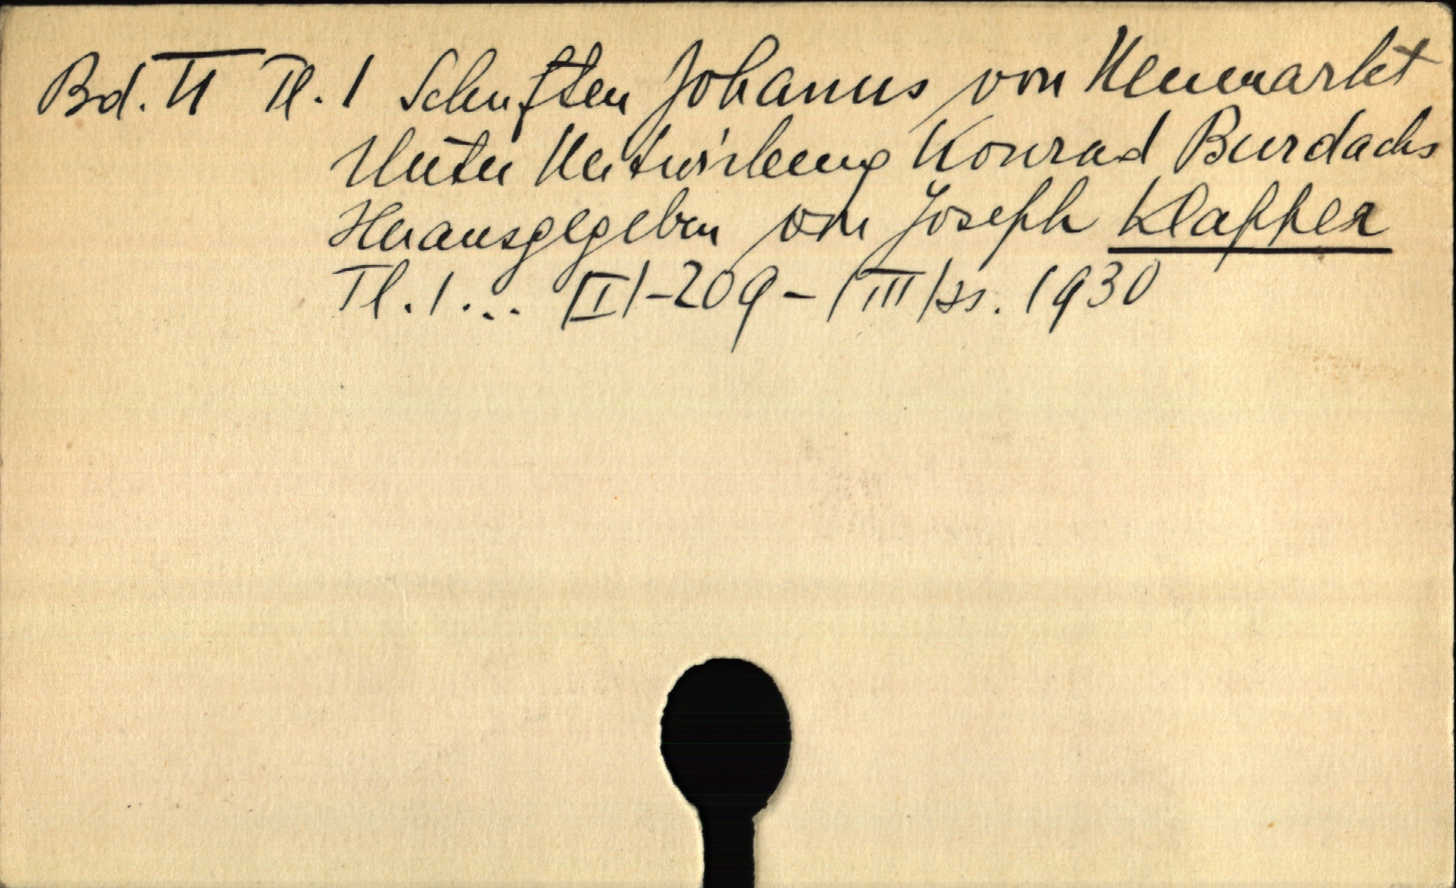 Bd. II Tl. 1 Schriften Johanns von Neumarkt
Unter Mitwirkung Konrad Burdachs
Herausgegeben von Joseph Klapper
Tl. 1 ... [I]-209-(III)ss. 1930